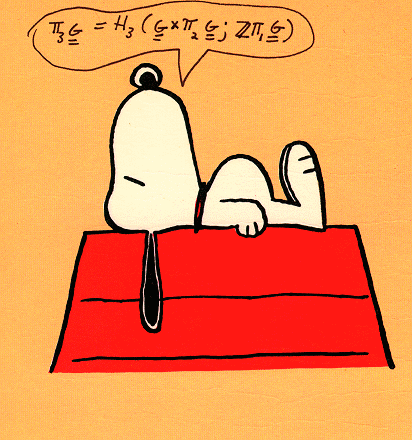 π₃G̳ = H₃ (G̳×π₂G̳; ℤπ₁G̳)